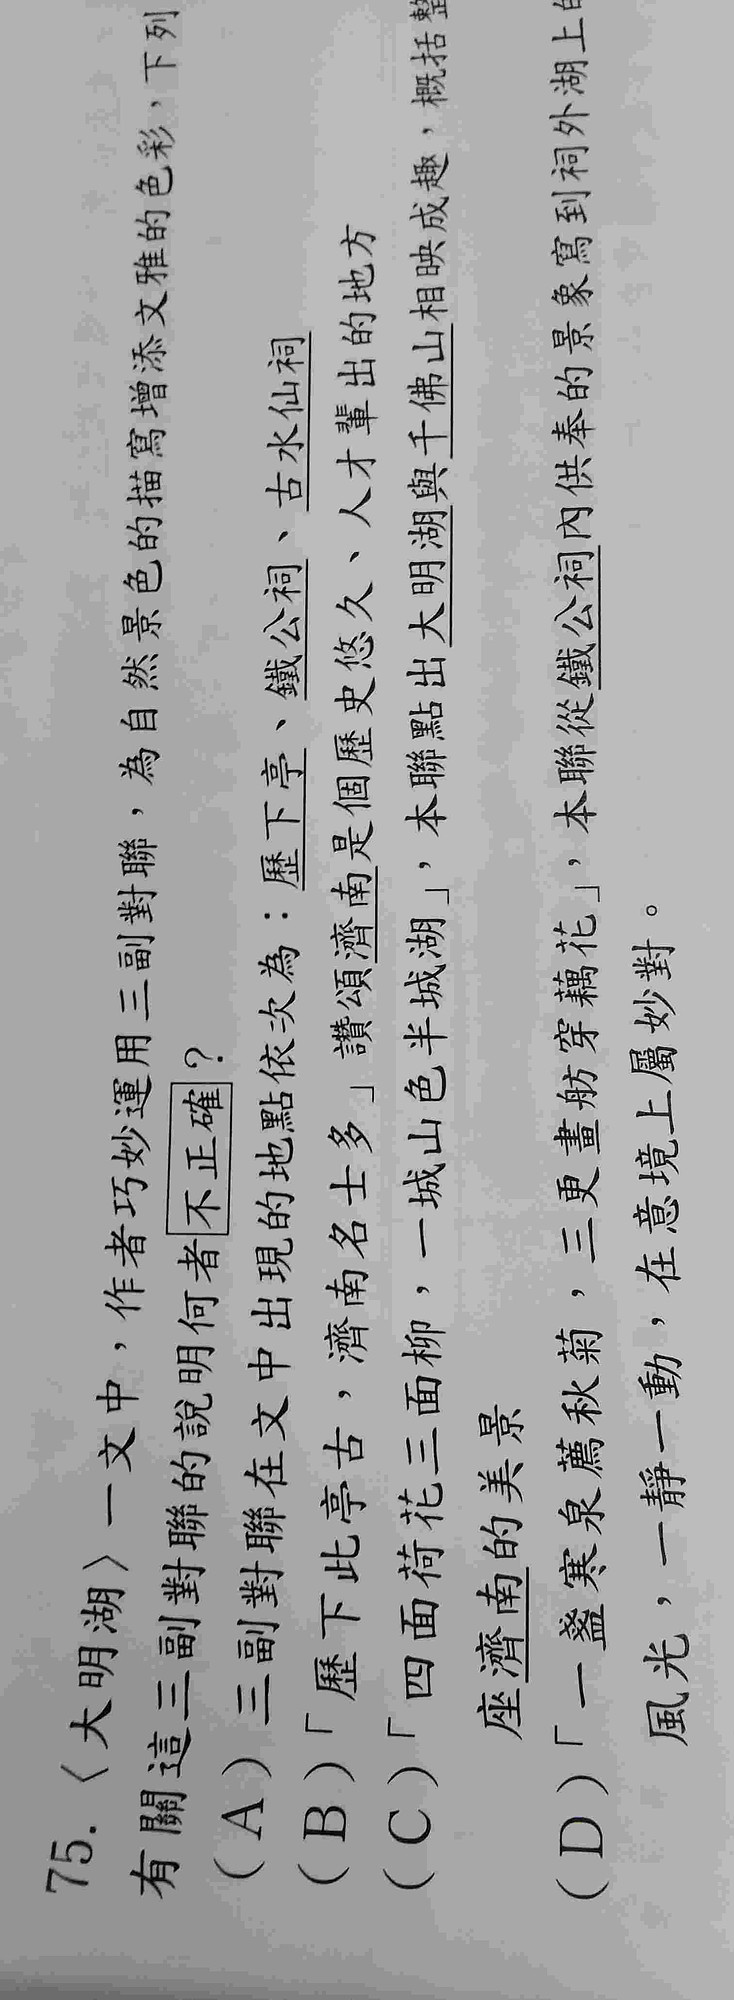 75.〈大明湖〉一文中，作者巧妙運用三副對聯，為自然景色的描寫增添文雅的色彩，下列
有關這三副對聯的說明何者不正確？
（A）三副對聯在文中出現的地點依次為：歷下亭、鐵公祠、古水仙祠
（B）「歷下此亭古，濟南名士多」讚頌濟南是個歷史悠久、人才輩出的地方
（C）「四面荷花三面柳，一城山色半城湖」，本聯點出大明湖與千佛山相映成趣，概括整
座濟南的美景
（D）「一盞寒泉薦秋菊，三更畫舫穿藕花」，本聯從鐵公祠內供奉的景象寫到祠外湖上的
風光，一靜一動，在意境上屬妙對。